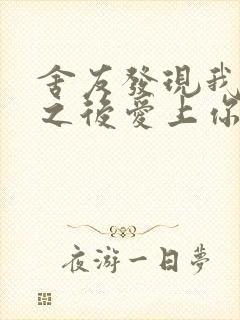 舍友發現我
之後愛上你
夜游一日夢